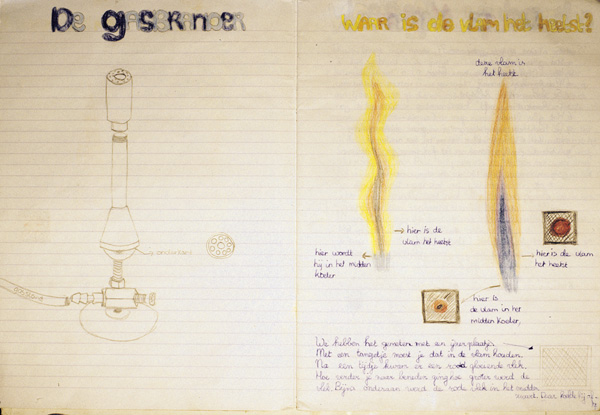 De gasbrander
WAAR is de vlam het heetst?
deze vlam is
het heetst
hier is de
vlam het heetst
hier wordt
hij in het midden
koeler
hier is de vlam
het heetst
hier is
de vlam in het
midden koeler,
We hebben het gemeten met een ijzer plaatje.
Met een tangetje moest je dat in de vlam houden.
Na een tijdje kwam er een rood gloeiende vlek.
Hoe verder je naar beneden ging hoe groter werd de
vlek. Bijna onderaan werd de rode vlek in het midden
zwart. Daar